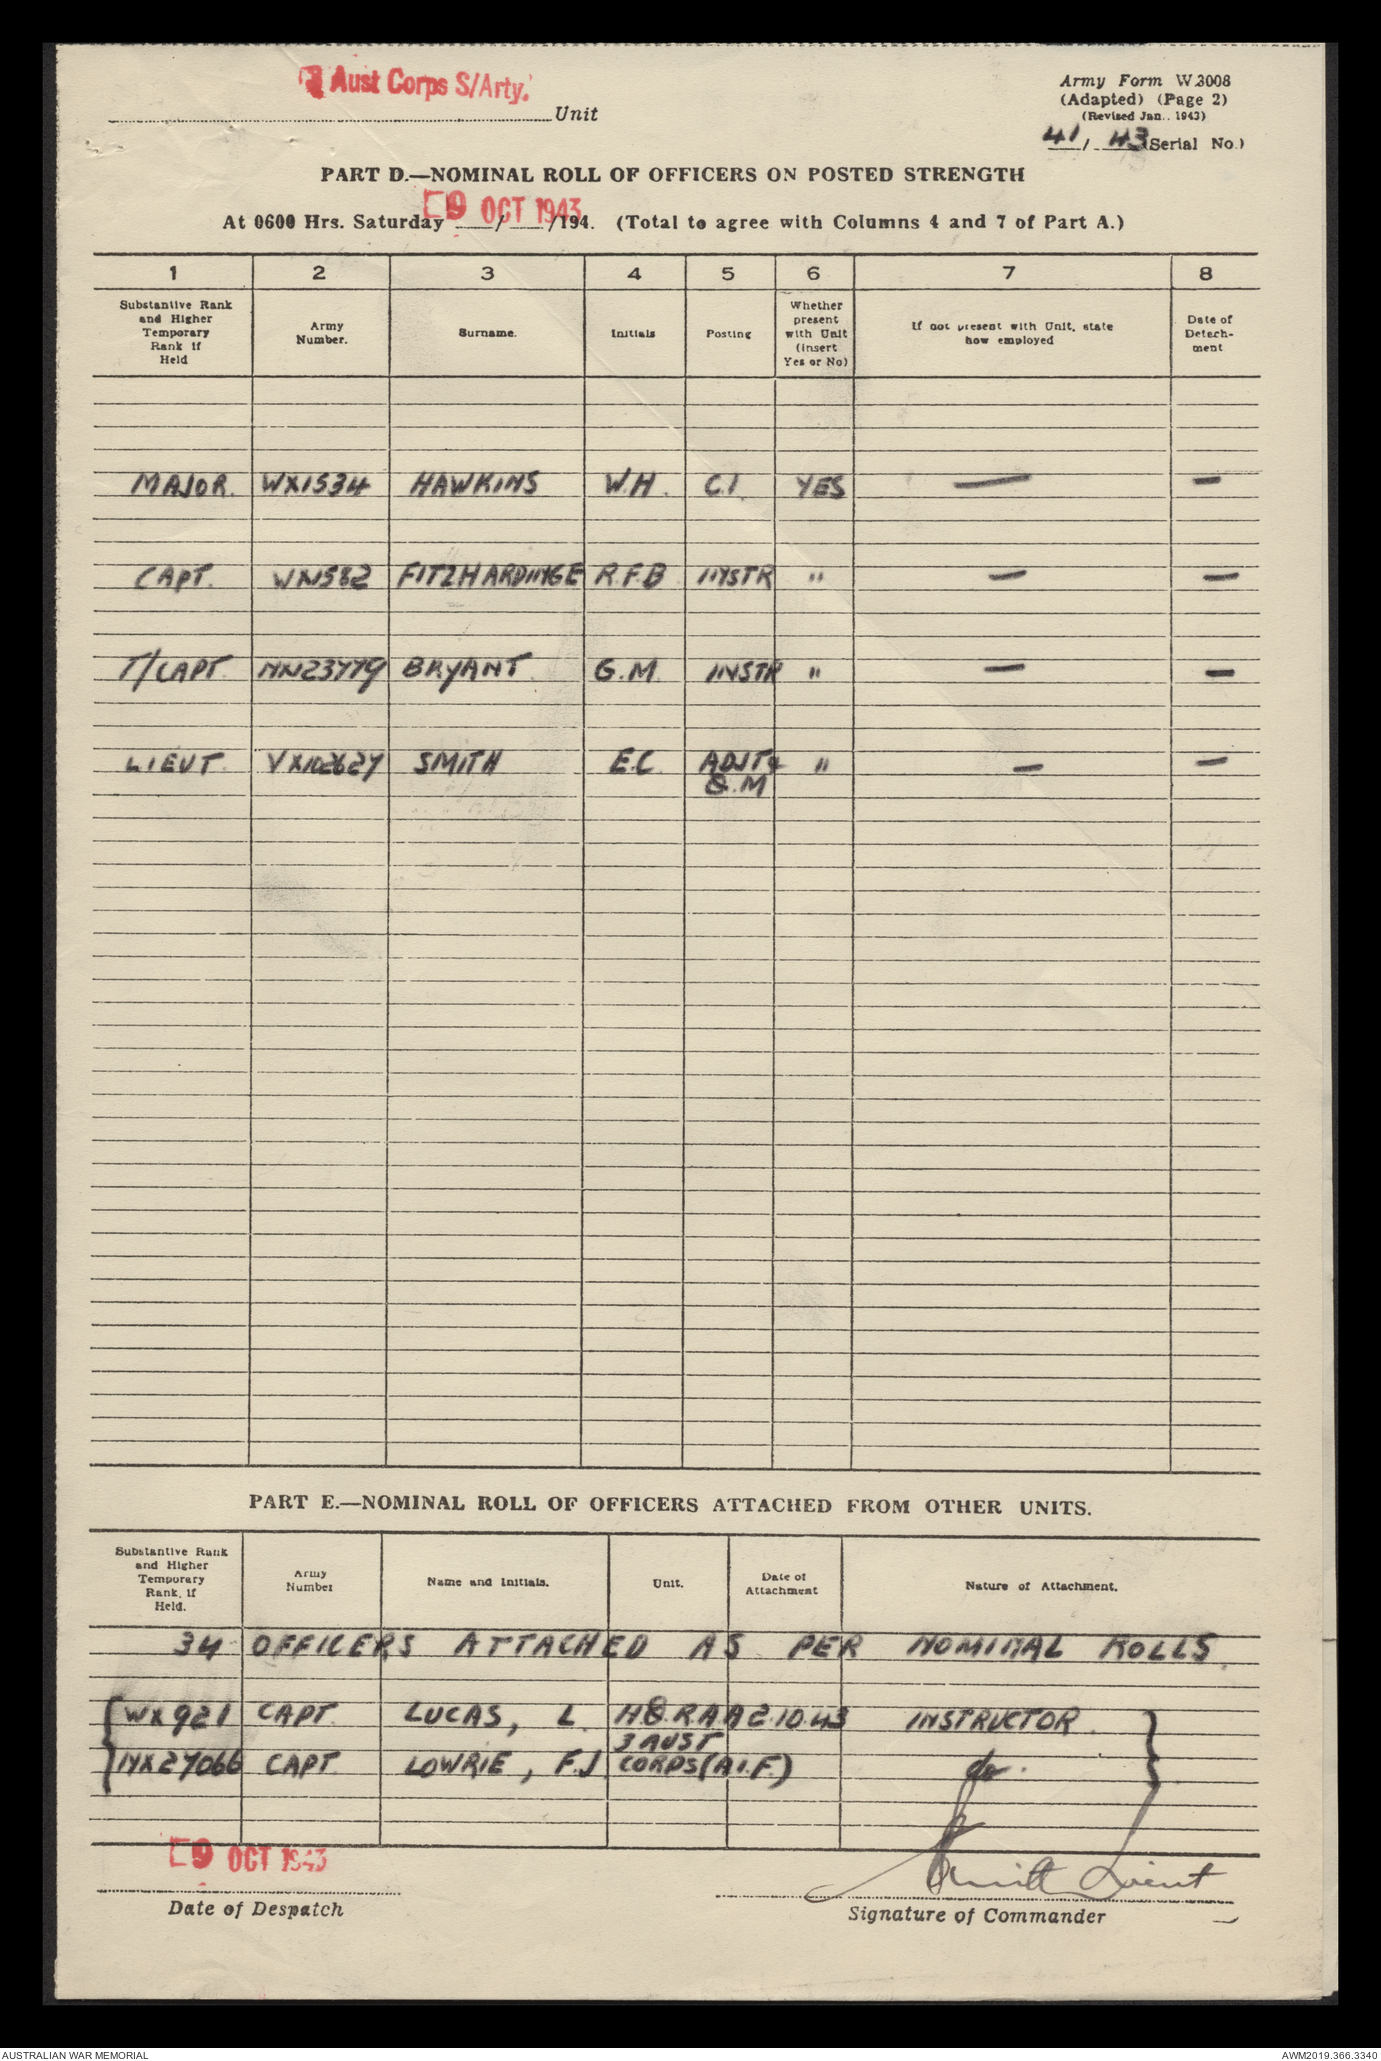 Aust Corps S/Arty.
Unit
Army Form W.3008
(Adapted) (Page 2)
(Revised Jan.. 1943)
41/43 (Serial No.)
PART D.—NOMINAL ROLL OF OFFICERS ON POSTED STRENGTH
9 OCT 1943
At 0600 Hrs. Saturday / /194. (Total to agree with Columns 4 and 7 of Part A.)
1 2 3 4 5 6 7 8
Substantive Rank and Higher Temporary Rank if Held
Army Number.
Surname.
Initials
Posting
Whether present with Unit (Insert Yes or No)
If not present with Unit, state how employed
Date of Detachment
MAJOR. WX1534 HAWKINS W.H. C.I. YES — —
CAPT. WX1582 FITZHARDINGE R.F.B INSTR " — —
T/CAPT. NX23779 BRYANT G.M. INSTR " — —
LIEUT. VX102627 SMITH E.C. ADJT & " — —
Q.M
PART E.—NOMINAL ROLL OF OFFICERS ATTACHED FROM OTHER UNITS.
Substantive Rank and Higher Temporary Rank, if Held.
Army Number
Name and Initials.
Unit.
Date of Attachment
Nature of Attachment.
34 OFFICERS ATTACHED AS PER NOMINAL ROLLS.
WX921 CAPT. LUCAS, L. HQ.RAA 2.10.43 INSTRUCTOR.
3 AUST
NX27066 CAPT. LOWRIE, F.J. CORPS (A.I.F.) do.
9 OCT 1943
Smith Lieut
Date of Despatch
Signature of Commander
AUSTRALIAN WAR MEMORIAL
AWM2019.366.3340